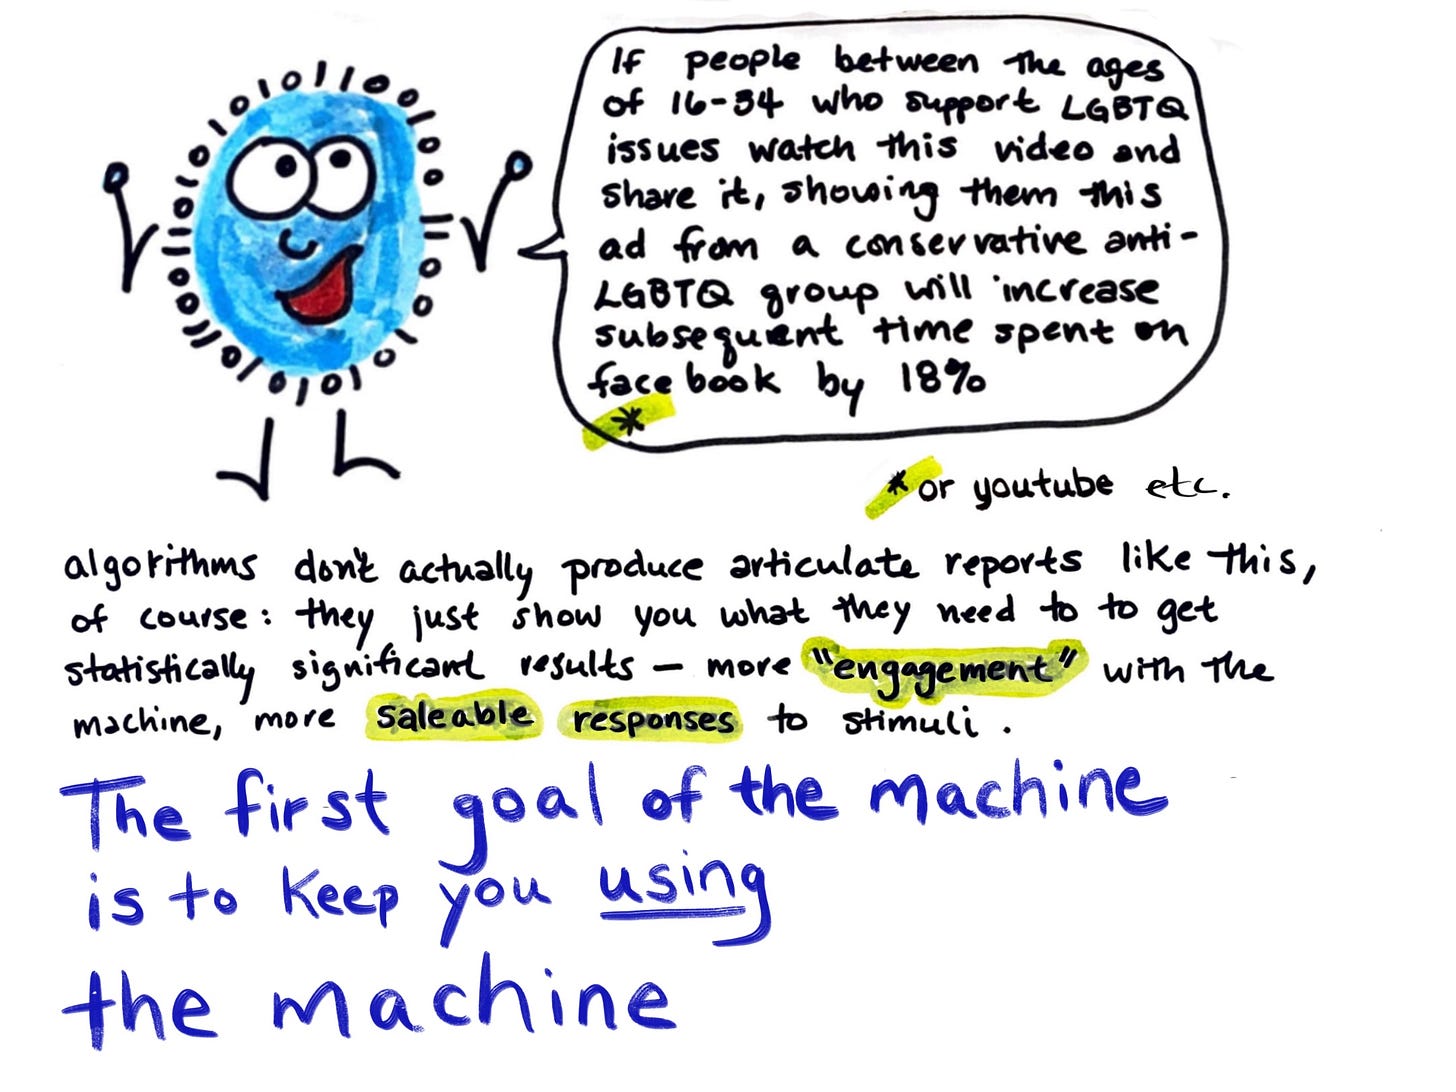 If people between the ages
of 16-34 who support LGBTQ
issues watch this video and
share it, showing them this
ad from a conservative anti-
LGBTQ group will increase
subsequent time spent on
facebook by 18%
*
*or youtube etc.
algorithms don't actually produce articulate reports like this,
of course: they just show you what they need to to get
statistically significant results — more "engagement" with the
machine, more saleable responses to stimuli.
The first goal of the machine
is to keep you using
the machine